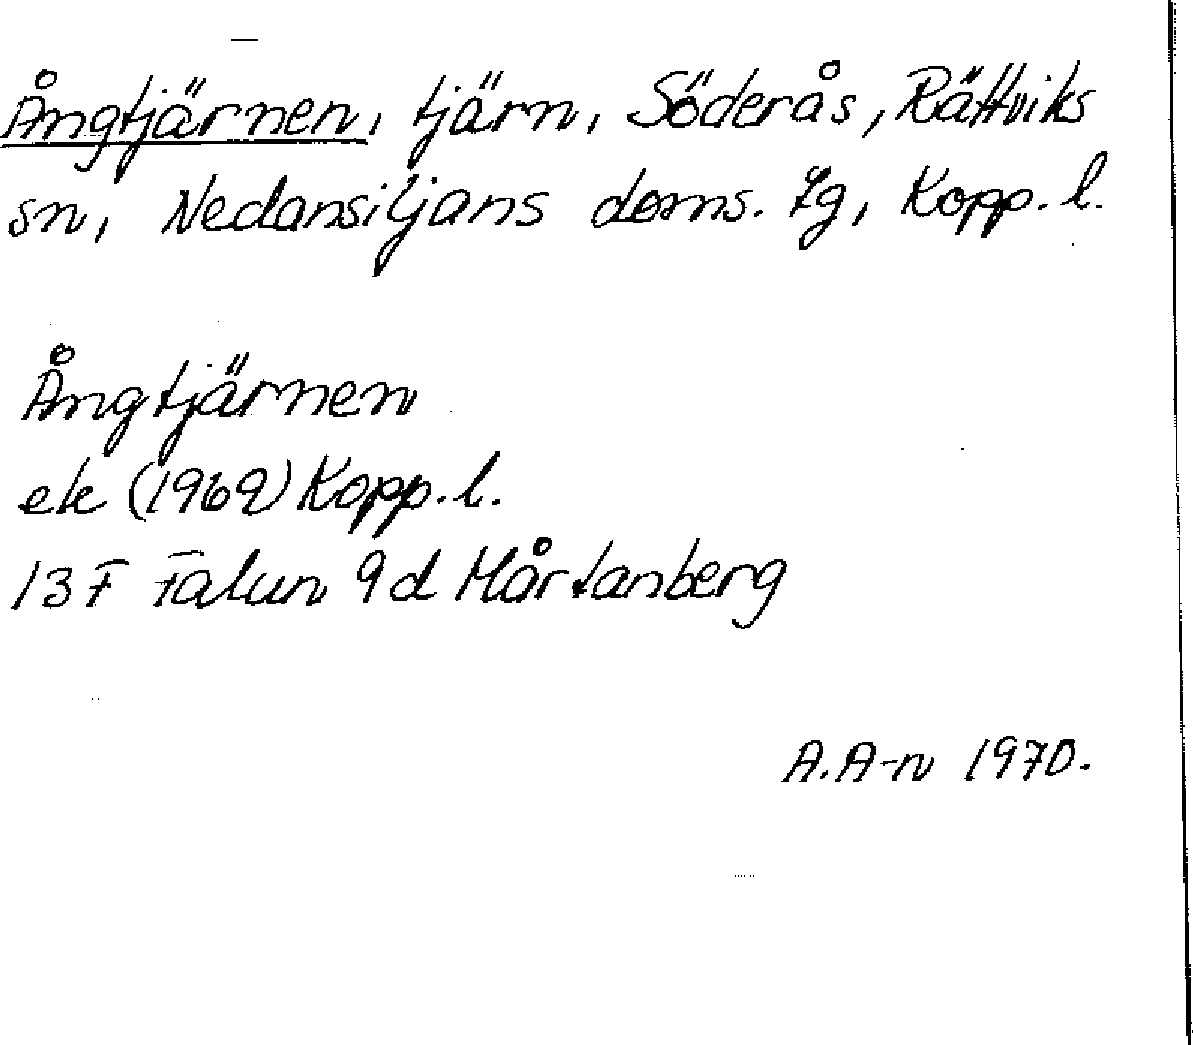 Ångtjärnen, tjärn, Söderås, Rättviks
sn, Nedansiljans doms. tg, Kopp. l.
Ångtjärnen
ek (1969) Kopp. l.
13F Falun 9d Mårtanberg
A.A-n 1970.